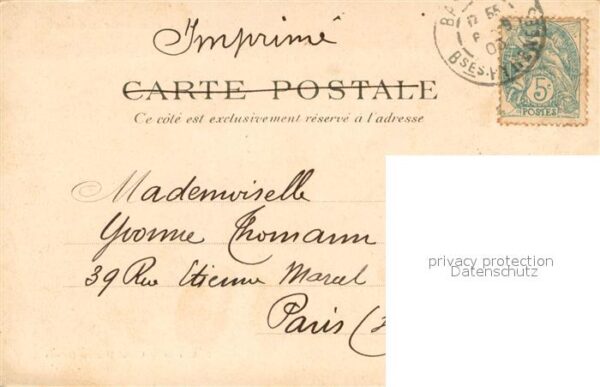 Imprimé
CARTE POSTALE
Ce côté est exclusivement réservé à l'adresse
5c
POSTES
Bses-PYRENEES
Mademoiselle
Yvonne Thomann
39 Rue Etienne Marcel
Paris
privacy protection
Datenschutz